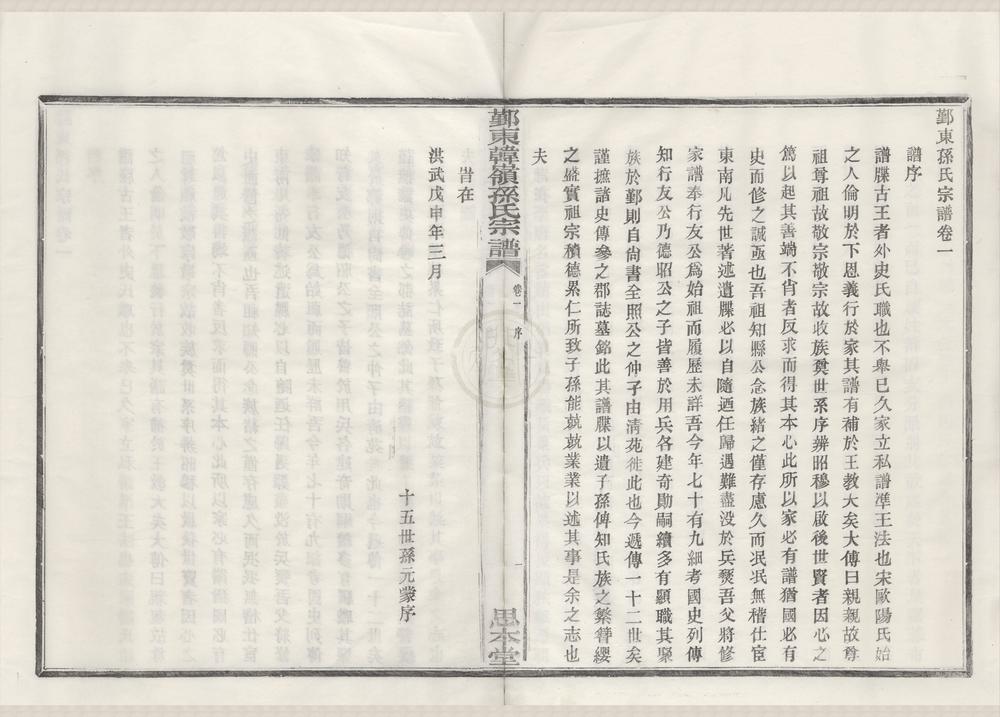 鄞東孫氏宗譜卷一
譜序
譜牒古王者外史氏職也不舉已久家立私譜準王法也宋歐陽氏始
之人倫明於下恩義行於家其譜有補於王教大矣大傳曰親親故尊
祖尊祖故敬宗敬宗故收族奠世系序辨昭穆以啟後世賢者因心之
篤以起其善端不肖者反求而得其本心此所以家必有譜猶國必有
史而修之誠亟也吾祖知縣公念族緒之僅存慮久而泯泯無稽仕宦
東南凡先世著述遺牒必以自隨迺任歸遇難盡没於兵燹吾父將修
家譜奉行友公爲始祖而履歷未詳吾今年七十有九細考國史列傳
知行友公乃德昭公之子皆善於用兵各建奇勛嗣續多有顯職其聚
族於鄞則自尚書全照公之仲子由清苑徙此也今遞傳一十二世矣
謹摭諸史傳參之郡誌墓銘此其譜牒以遺子孫俾知氏族之繁簪纓
之盛實祖宗積德累仁所致子孫能兢兢業業以述其事是余之志也
夫
旹在
洪武戊申年三月
十五世孫元蒙序
鄞東韓嶺孫氏宗譜
卷一
序
一
思本堂